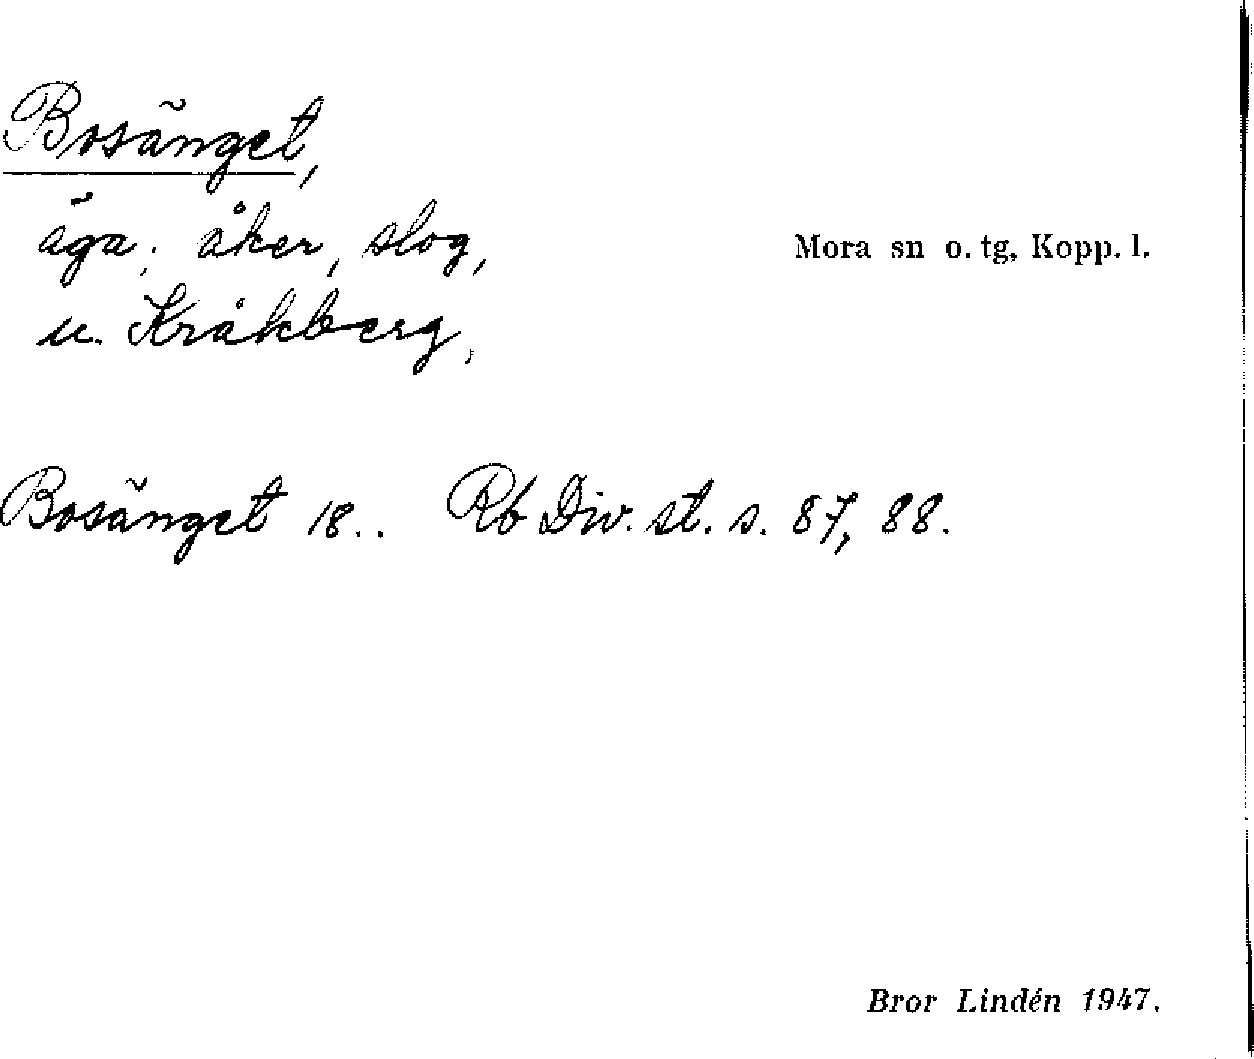 Bosänget,
äga; åker, slog,
Mora sn o. tg, Kopp. l.
u. Kråkberg,
Bosänget 18.. Rb Div. st. s. 87, 88.
Bror Lindén 1947.